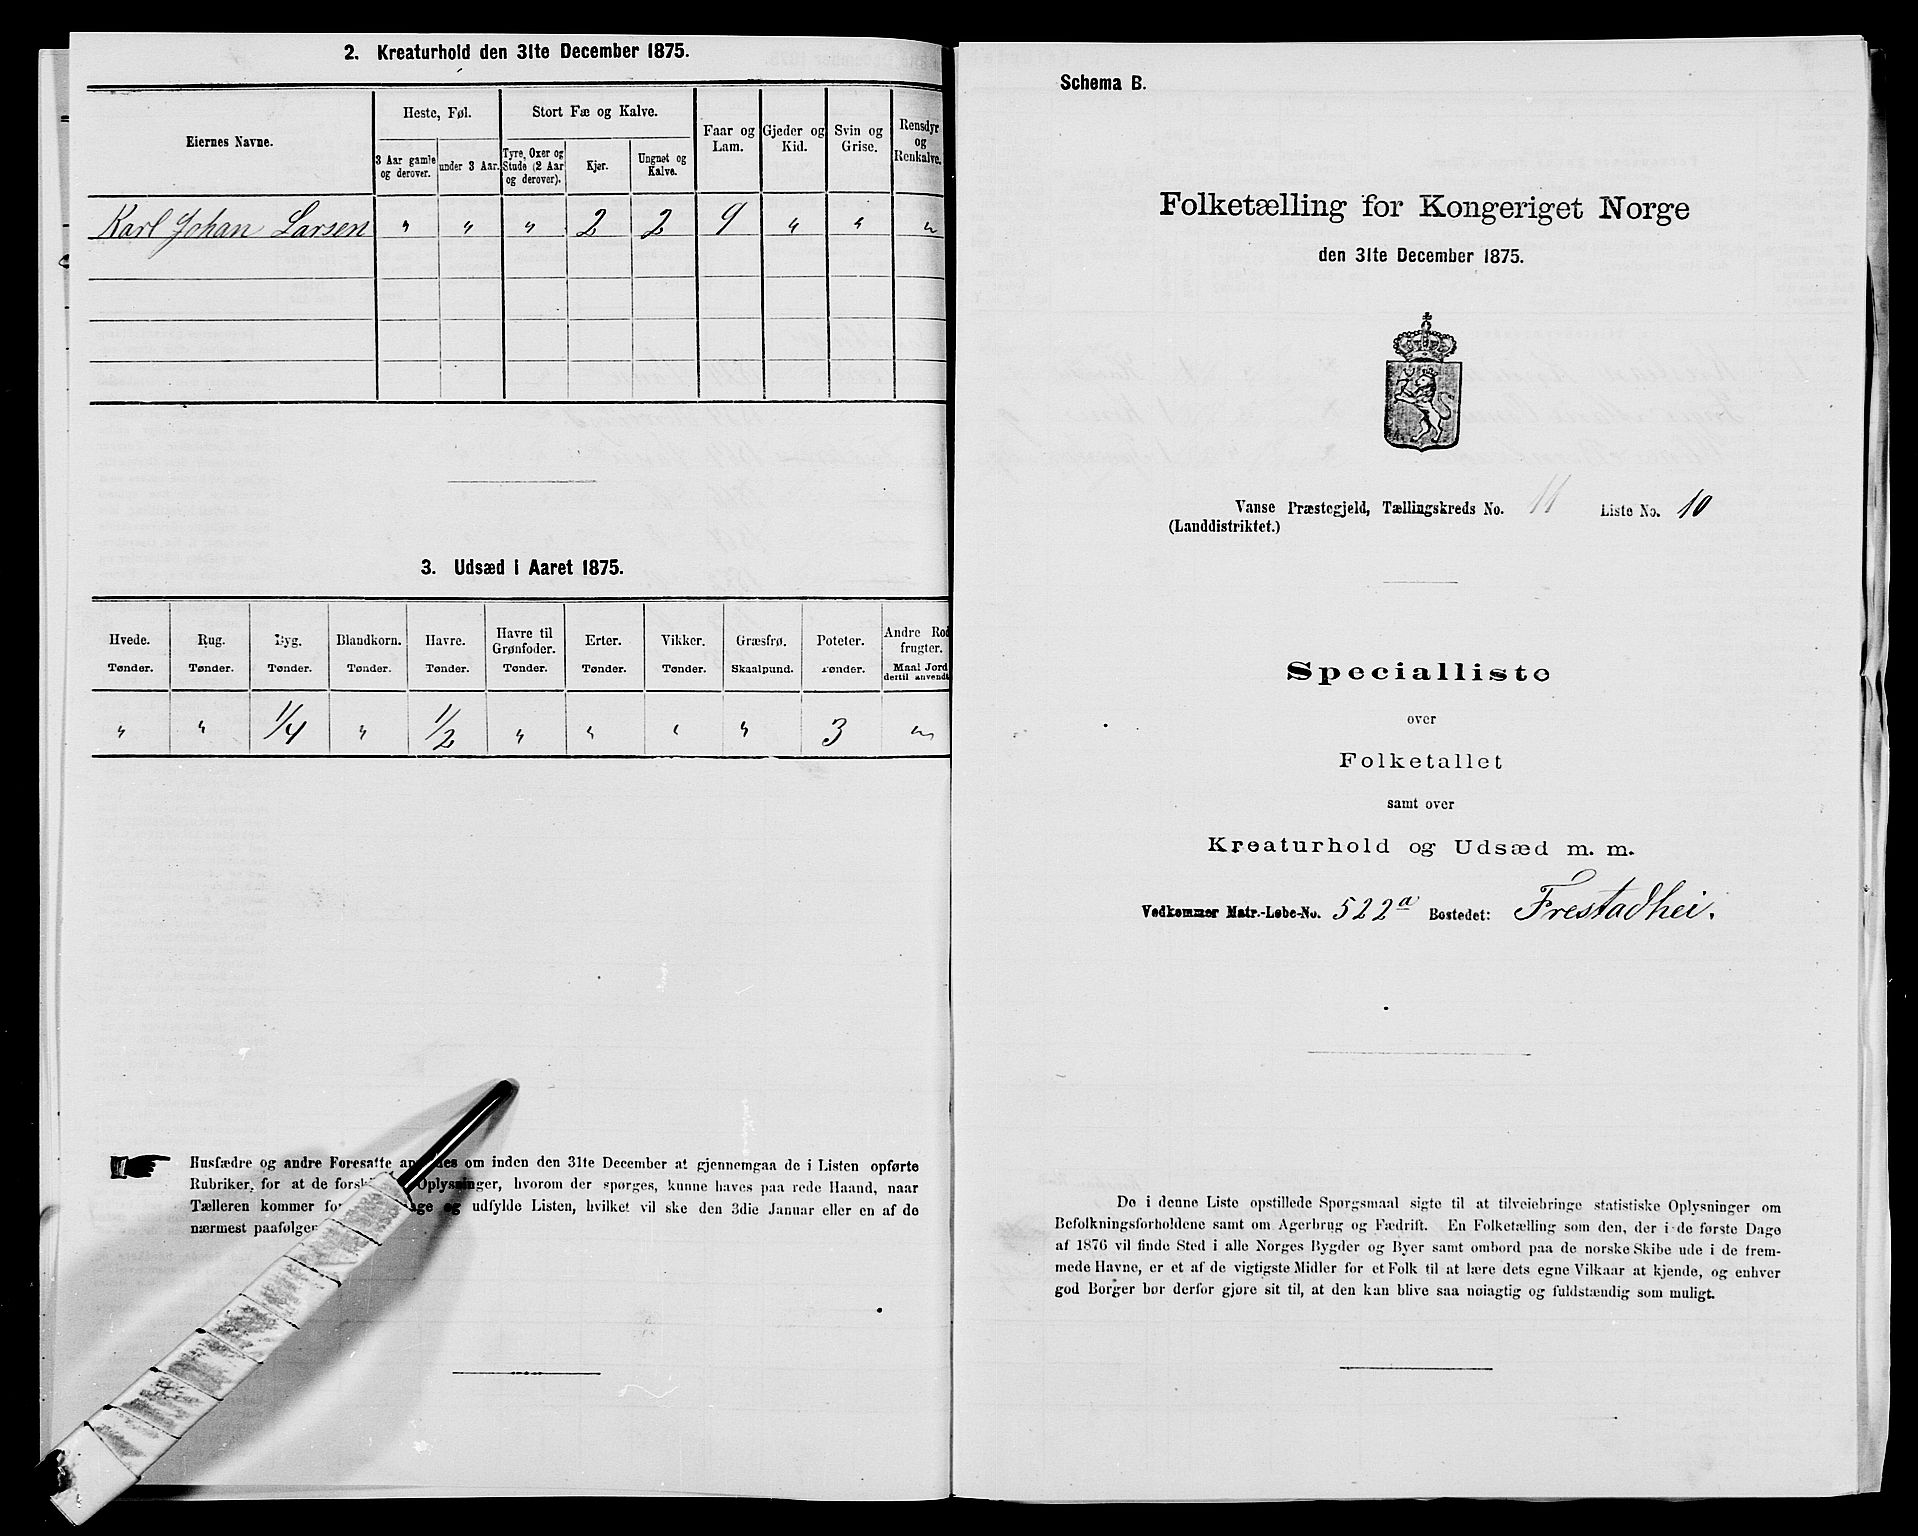 2. Kreaturhold den 31te December 1875.
Eiernes Navne.
Heste, Føl.
3 Aar gamle og derover.
under 3 Aar.
Stort Fæ og Kalve.
Tyre, Oxer og Stude (2 Aar og derover).
Kjør.
Ungnøt og Kalve.
Faar og Lam.
Gjeder og Kid.
Svin og Grise.
Rensdyr og Renkalve.
Karl Johan Larsen " " " 2 2 9 " " "
3. Udsæd i Aaret 1875.
Hvede. Rug. Byg. Blandkorn. Havre. Havre til Grønfoder. Erter. Vikker. Græsfrø. Poteter. Andre Rodfrugter.
Tønder. Tønder. Tønder. Tønder. Tønder. Tønder. Tønder. Tønder. Skaalpund. Tønder. Maal Jord dertil anvendt
" " 1/4 " 1/2 " " " " 3 "
Husfædre og andre Foresatte om inden den 31te December at gjennemgaa de i Listen opførte
Rubriker, for at de Oplysninger, hvorom der spørges, kunne haves paa rede Haand, naar
Tælleren kommer for og udfylde Listen, hvilket vil ske den 3die Januar eller en af de
nærmest paafølgen
Schema B.
Folketælling for Kongeriget Norge
den 31te December 1875.
Vanse Præstegjeld, Tællingskreds No. 11 Liste No. 10
(Landdistriktet.)
Specialliste
over
Folketallet
samt over
Kreaturhold og Udsæd m. m.
Vedkommer Matr.-Løbe-No. 522a Bostedet: Frestadhei.
De i denne Liste opstillede Spørgsmaal sigte til at tilveiebringe statistiske Oplysninger om
Befolkningsforholdene samt om Agerbrug og Fædrift. En Folketælling som den, der i de første Dage
af 1876 vil finde Sted i alle Norges Bygder og Byer samt ombord paa de norske Skibe ude i de frem-
mede Havne, er et af de vigtigste Midler for et Folk til at lære dets egne Vilkaar at kjende, og enhver
god Borger bør derfor gjøre sit til, at den kan blive saa nøiagtig og fuldstændig som muligt.